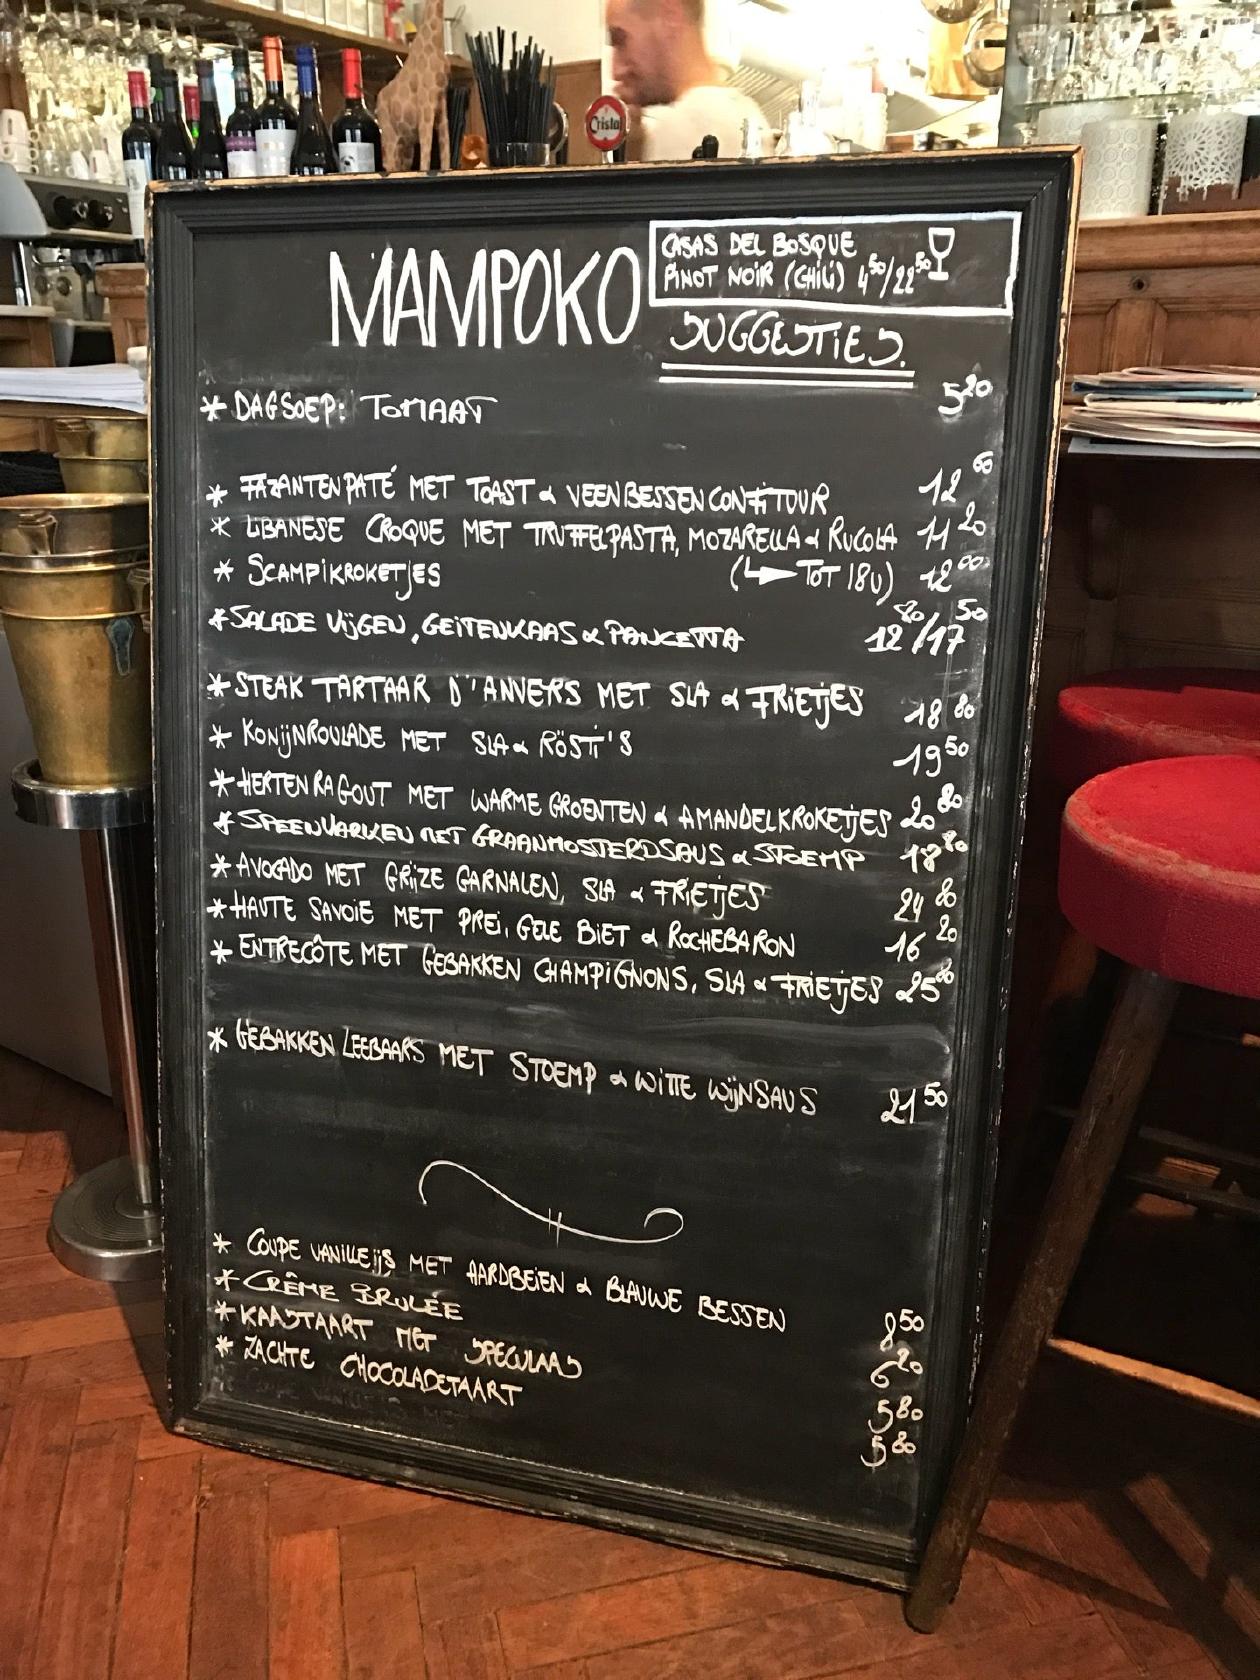 Cristal
MAMPOKO
CASAS DEL BOSQUE
PINOT NOIR (CHILI) 4⁵⁰/22⁵⁰
SUGGESTIES.
* DAGSOEP: TOMAAT 5²⁰
* FAZANTENPATÉ MET TOAST & VEENBESSENCONFITUUR 12⁶⁰
* LIBANESE CROQUE MET TRUFFELPASTA, MOZARELLA & RUCOLA 11²⁰
* SCAMPIKROKETJES (↳ TOT 18U) 12⁰⁰
* SALADE VIJGEN, GEITENKAAS & PANCETTA 12⁸⁰/17⁵⁰
* STEAK TARTAAR D'ANVERS MET SLA & FRIETJES 18⁸⁰
* KONIJNROULADE MET SLA & RÖSTI'S 19⁵⁰
* HERTENRAGOUT MET WARME GROENTEN & AMANDELKROKETJES 20⁸⁰
* SPEENVARKEN MET GRAANMOSTERDSAUS & STOEMP 18⁸⁰
* AVOCADO MET GRIJZE GARNALEN, SLA & FRIETJES 24⁸⁰
* HAUTE SAVOIE MET PREI, GELE BIET & ROCHEBARON 16²⁰
* ENTRECÔTE MET GEBAKKEN CHAMPIGNONS, SLA & FRIETJES 25⁸⁰
* GEBAKKEN LEEBAARS MET STOEMP & WITTE WIJNSAUS 21⁵⁰
* COUPE VANILLEIJS MET AARDBEIEN & BLAUWE BESSEN 8⁵⁰
* CRÊME BRULÉE 6²⁰
* KAASTAART MET SPECULAAS 5⁸⁰
* ZACHTE CHOCOLADETAART 5⁸⁰